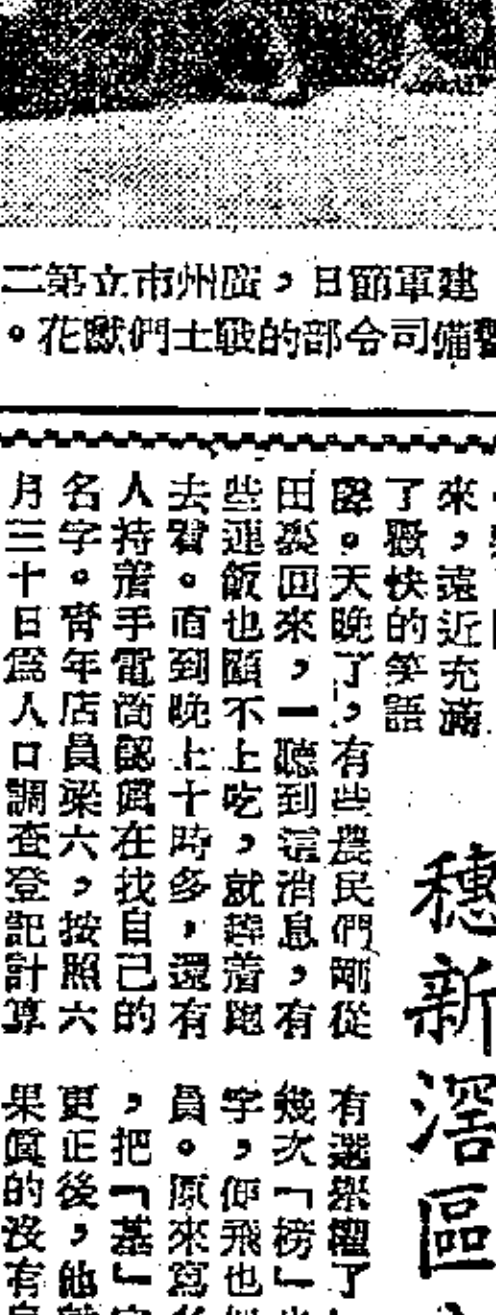 建軍節日，廣州市立第二
警備司令部的戰士們獻花。
穗新滘區
來，遠近充滿
了歡快的笑語
聲。天晚了，有些農民們剛從
田裏回來，一聽到這消息，有
些連飯也顧不上吃，就拉着跑
去看。直到晚上十時多，還有
人持着手電筒認眞在找自己的
名字。靑年店員梁六，按照六
月三十日爲人口調查登記計算
有選舉權了
幾次「榜」
字，便飛也
員。原來寫
，把「基」
更正後，他
果眞的沒有